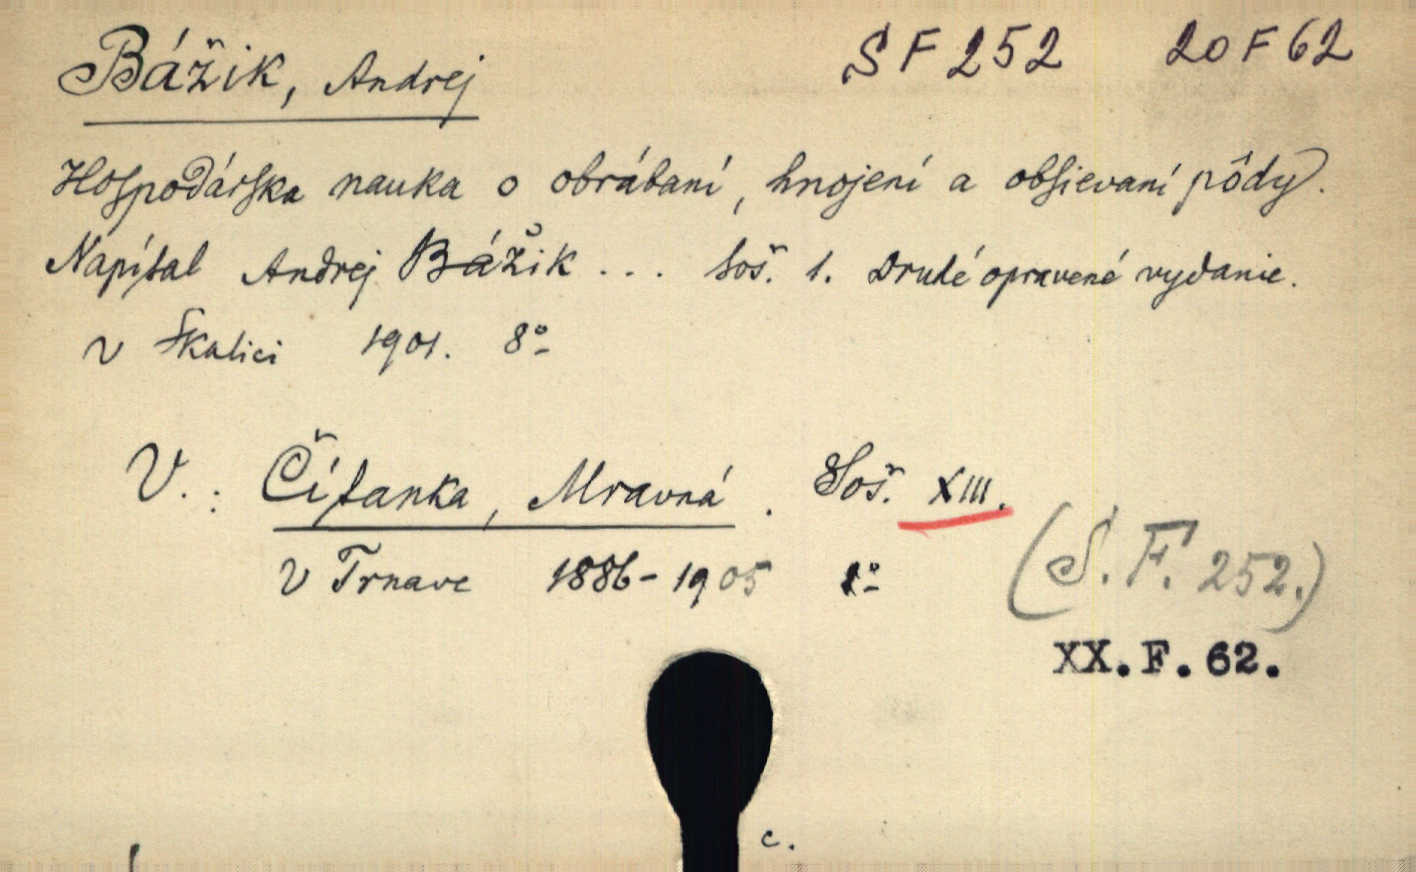 Bážik, Andrej SF252 20F62
Hospodárska nauka o obrábaní, hnojení a obsievaní pôdy.
Napísal Andrej Bážik ... Soš. 1. Druhé opravené vydanie.
v Skalici 1901. 8°
V.: Čítanka, Mravná. Soš. XIII.
v Trnave 1886-1905 8°
(S.F. 252.)
XX.F.62.
c.